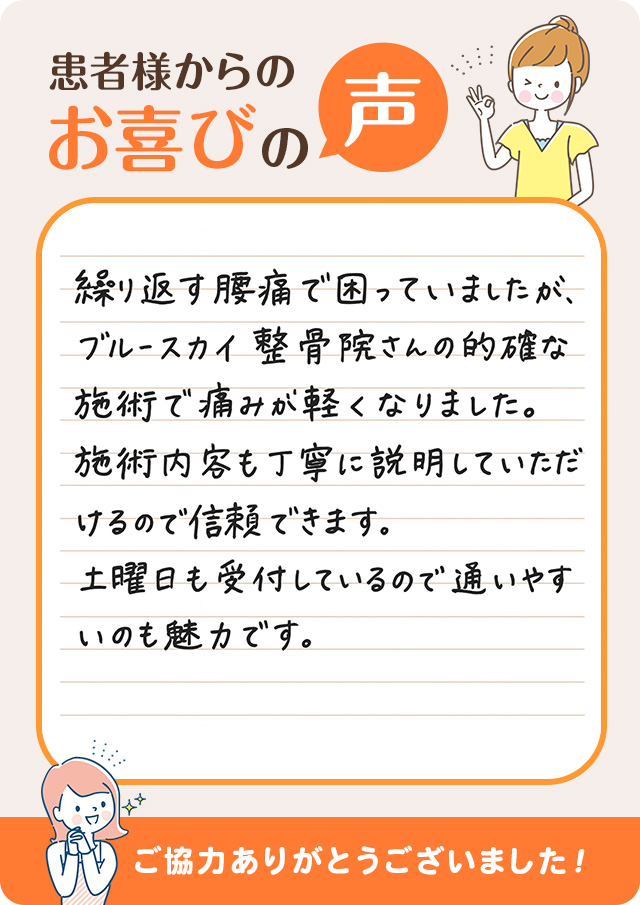 患者様からの
お喜びの声
繰り返す腰痛で困っていましたが、
ブルースカイ整骨院さんの的確な
施術で痛みが軽くなりました。
施術内容も丁寧に説明していただ
けるので信頼できます。
土曜日も受付しているので通いやす
いのも魅力です。
ご協力ありがとうございました!